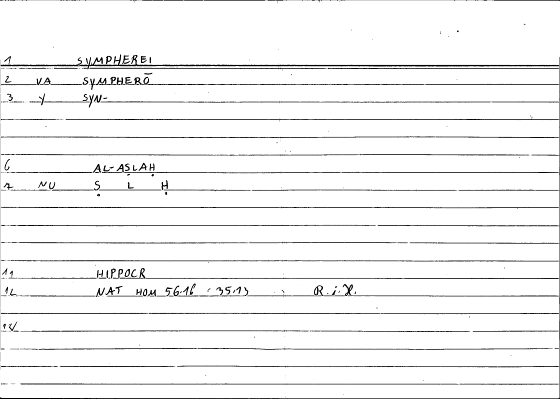 1 SYMPHEREI
2 VA SYMPHERŌ
3 Y SYN-
6 AL-AṢLAḤ
7 NU Ṣ L Ḥ
11 HIPPOCR
12 NAT HOM 56.16 : 35.13 R. i. H.
14